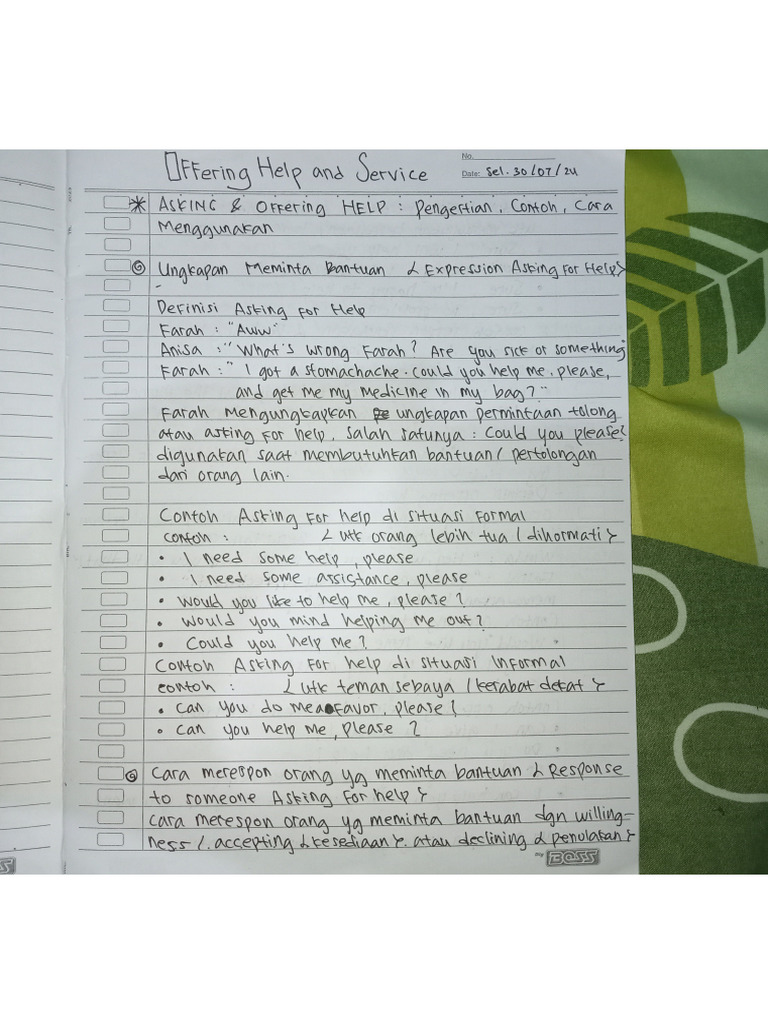 Offering Help and Service
No.
Date: Sel. 30/07/24
* ASKING & Offering HELP : Pengertian, Contoh, Cara
Menggunakan
Ungkapan Meminta Bantuan { Expression Asking For Help }
Definisi Asking For Help
Farah : "Aww"
Anisa : "What's wrong Farah? Are you sick or something"
Farah : " I got a stomachache. Could you help me, please,
and get me my medicine in my bag?"
Farah Mengungkapkan ungkapan permintaan tolong
atau asking For help, salah satunya : Could you please?
digunakan saat membutuhkan bantuan / pertolongan
dari orang lain.
Contoh Asking For help di situasi Formal
contoh : { utk orang lebih tua / dihormati }
• I need some help, please
• I need some assistance, please
• Would you like to help me, please?
• Would you mind helping me out?
• Could you help me?
Contoh Asking For help di situasi Informal
contoh : { utk teman sebaya / kerabat dekat }
• Can you do me a Favor, please!
• Can you help me, please ?
Cara merespon orang yg meminta bantuan { Response
to someone Asking For help }
Cara merespon orang yg meminta bantuan dgn willing=
ness /. accepting { kesediaan }. atau declining { penolakan }
my BOSS